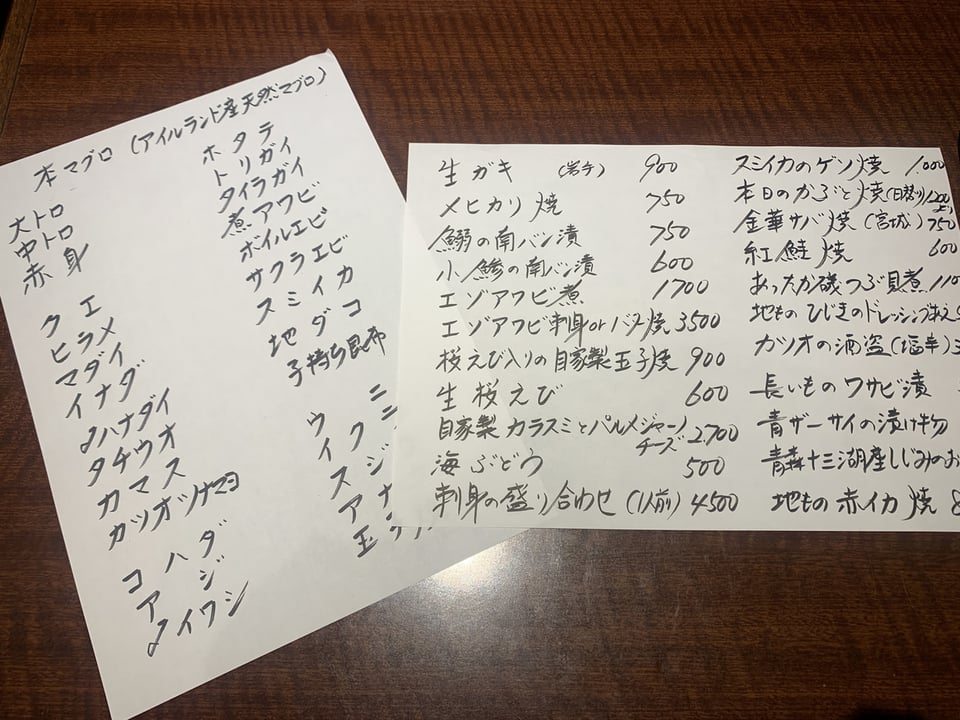 本マグロ (アイルランド産天然マグロ)
大トロ
中トロ
赤身
クエ
ヒラメ
マダイ
イナダ
♂ハナダイ
タチウオ
カマス
カツオツナマヨ
コハダ
アジ
♂イワシ
ホタテ
トリガイ
タイラガイ
煮アワビ
ボイルエビ
サクラエビ
スミイカ
地ダコ
子持ち昆布
ウニ
イク
スジ
アナ
玉
生ガキ (岩手) 900
メヒカリ焼 750
鰯の南バン漬 750
小鯵の南バン漬 600
エゾアワビ煮 1700
エゾアワビ刺身orバター焼 3500
桜えび入りの自家製玉子焼 900
生桜えび 600
自家製カラスミとパルメジャーノチーズ 2,700
海ぶどう 500
刺身の盛り合わせ (1人前) 4500
スミイカのゲソ焼 1.000
本日のかぶと焼(日替り)1200より
金華サバ焼 (宮城) 750
紅鮭焼 600
あったか磯つぶ貝煮 110
地ものひじきのドレッシングあえ
カツオの酒盗(塩辛)
長いものワサビ漬
青ザーサイの漬け物
青森十三湖産しじみのお
地もの赤イカ焼 8